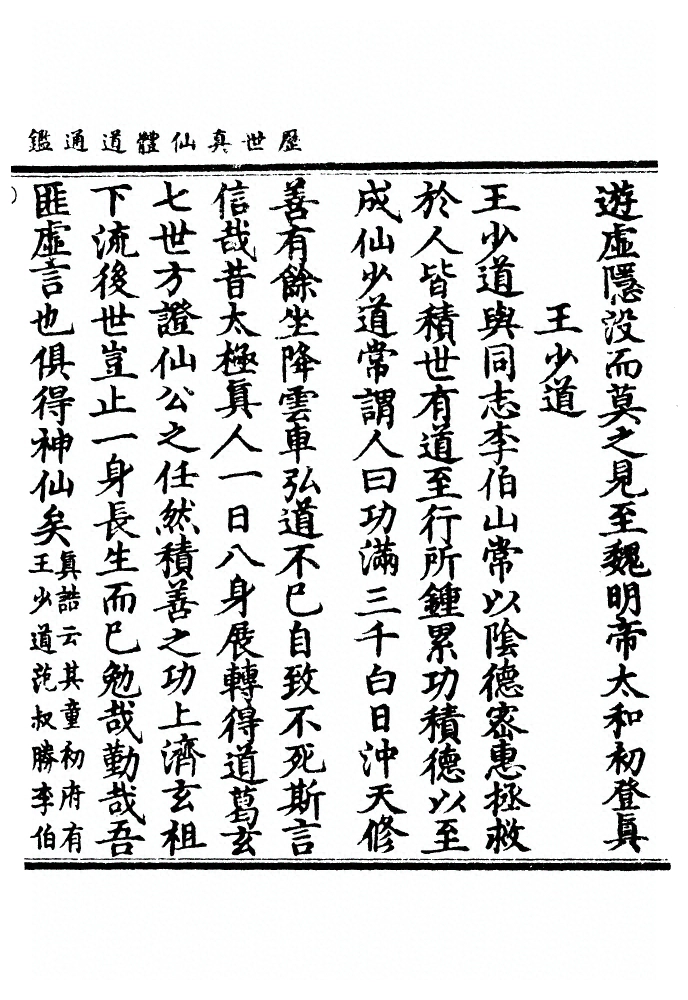 歷世真仙體道通鑑
遊虛隱没而莫之見至魏明帝太和初登真
王少道
王少道與同志李伯山常以陰德密惠拯救
於人皆積世有道至行所鍾累功積德以至
成仙少道常謂人曰功滿三千白日沖天修
善有餘坐降雲車弘道不已自致不死斯言
信哉昔太極真人一日八身展轉得道葛玄
七世方證仙公之任然積善之功上濟玄祖
下流後世豈止一身長生而已勉哉勤哉吾
匪虛言也俱得神仙矣真誥云其童初府有
王少道范叔勝李伯